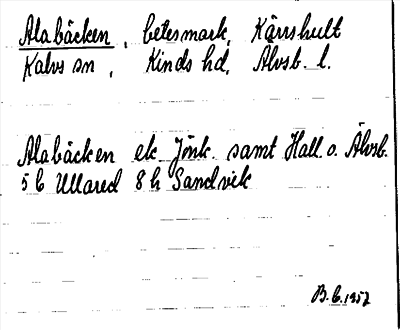 Alabäcken, betesmark, Kärrshult
Kalvs sn, Kinds hd, Älvsb. l.
Alabäcken ek Jönk. samt Hall. o. Älvsb.
5 C Ullared 8 h Sandvik
B. C. 1957